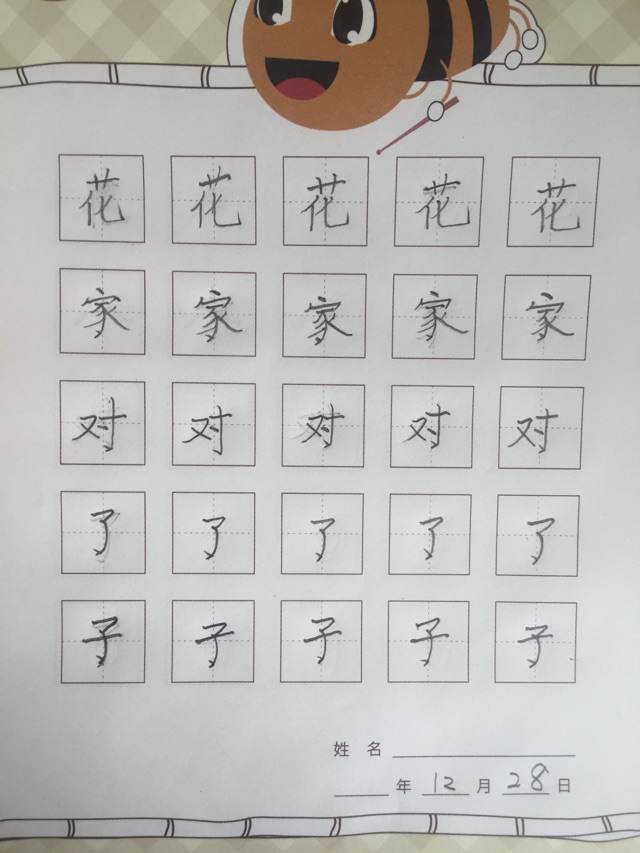 花 花 花 花 花
家 家 家 家 家
对 对 对 对 对
了 了 了 了 了
子 子 子 子 子
姓 名
年 12 月 28 日